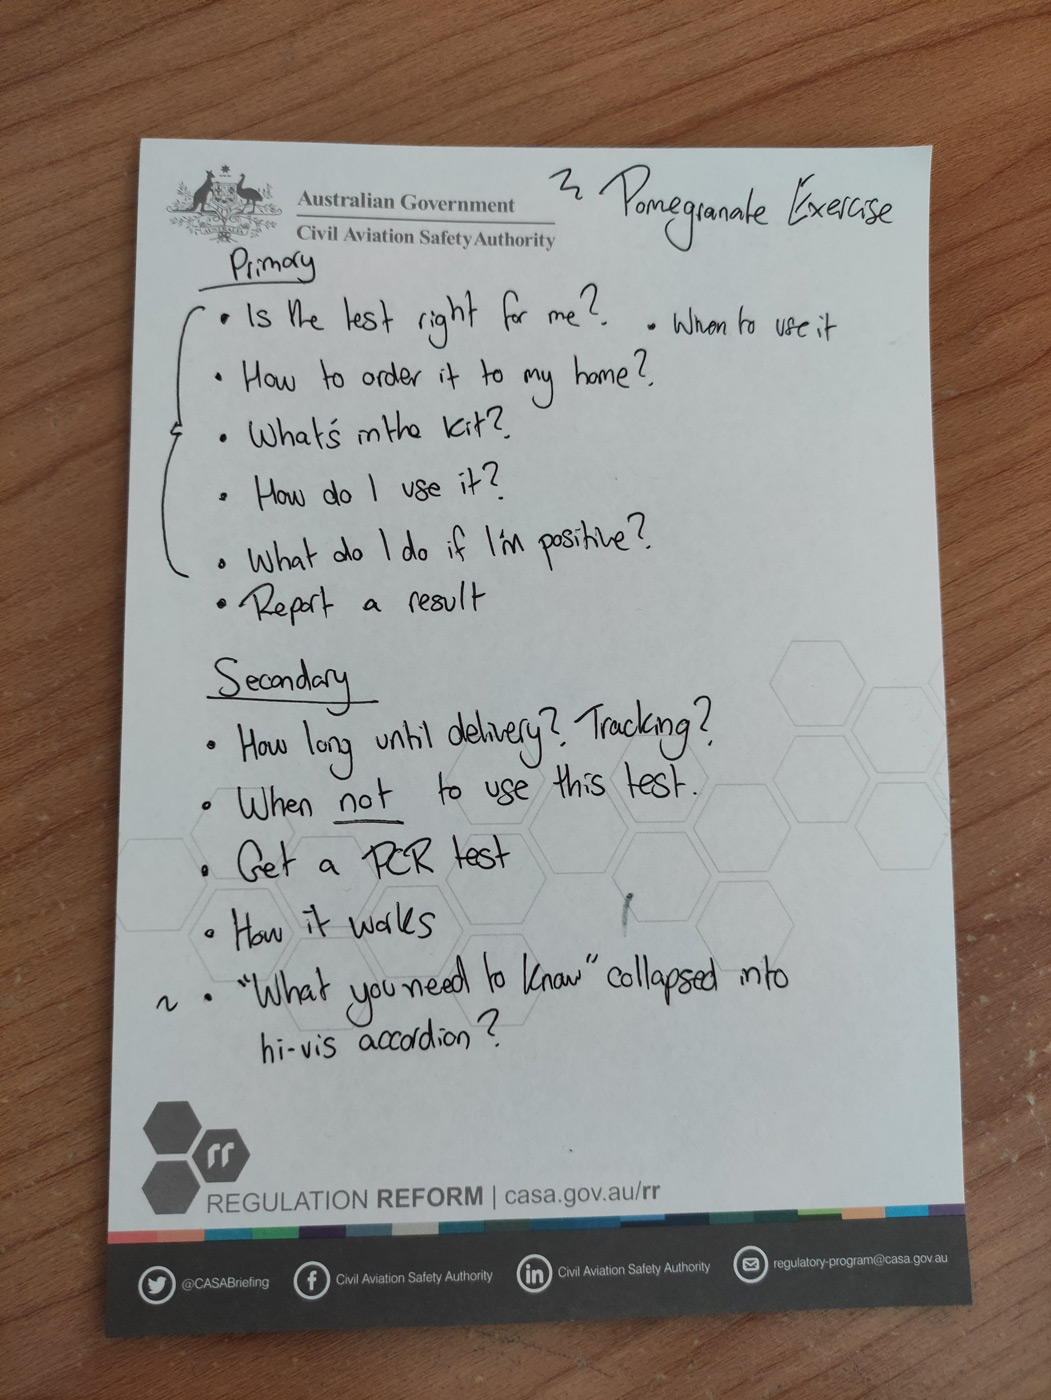 Australian Government
Civil Aviation Safety Authority
Pomegranate Exercise
Primary
• Is the test right for me? • When to use it
• How to order it to my home?
• What's in the kit?
• How do I use it?
• What do I do if I'm positive?
• Report a result
Secondary
• How long until delivery? Tracking?
• When not to use this test.
• Get a PCR test
• How it works
~ • "What you need to know" collapsed into
hi-vis accordion?
rr
REGULATION REFORM | casa.gov.au/rr
@CASABriefing
Civil Aviation Safety Authority
in
Civil Aviation Safety Authority
regulatory-program@casa.gov.au